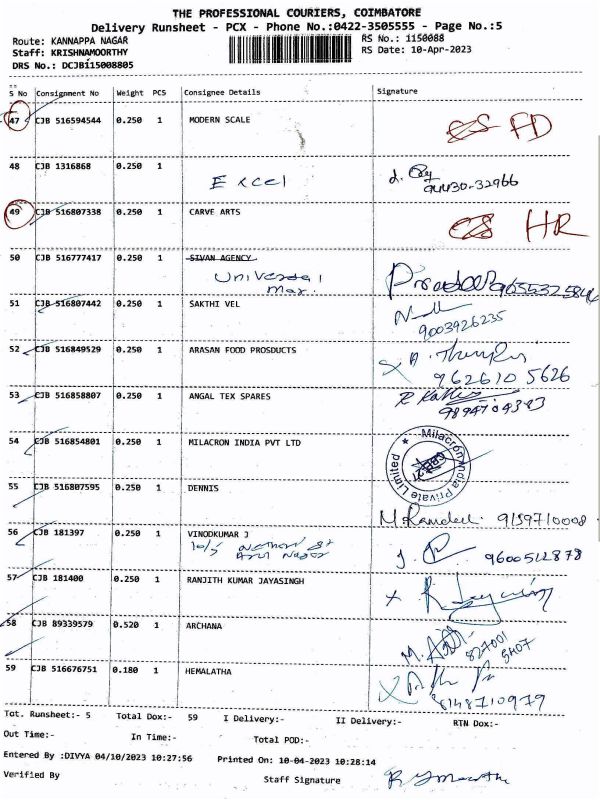 THE PROFESSIONAL COURIERS, COIMBATORE
Delivery Runsheet - PCX - Phone No.:0422-3505555 - Page No.:5
Route: KANNAPPA NAGAR RS No.: 1150088
Staff: KRISHNAMOORTHY RS Date: 10-Apr-2023
DRS No.: DCJB115008805
S No Consignment No Weight PCS Consignee Details Signature
47 CJB 516594544 0.250 1 MODERN SCALE CS FD
48 CJB 1316868 0.250 1
Excel 94430-32966
49 CJB 516807338 0.250 1 CARVE ARTS CS HR
50 CJB 516777417 0.250 1 SIVAN AGENCY
Universal
Max.
51 CJB 516807442 0.250 1 SAKTHI VEL
9003926235
52 CJB 516849529 0.250 1 ARASAN FOOD PROSDUCTS
9626105626
53 CJB 516858807 0.250 1 ANGAL TEX SPARES
54 CJB 516854801 0.250 1 MILACRON INDIA PVT LTD
Milacron India Private Limited
55 CJB 516807595 0.250 1 DENNIS
9159710008
56 CJB 181397 0.250 1 VINODKUMAR J
9600512878
57 CJB 181400 0.250 1 RANJITH KUMAR JAYASINGH
58 CJB 89339579 0.520 1 ARCHANA
59 CJB 516676751 0.180 1 HEMALATHA
Tot. Runsheet:- 5 Total Dox:- 59 I Delivery:- II Delivery:- RTN Dox:-
Out Time:- In Time:- Total POD:-
Entered By :DIVYA 04/10/2023 10:27:56 Printed On: 10-04-2023 10:28:14
Verified By Staff Signature